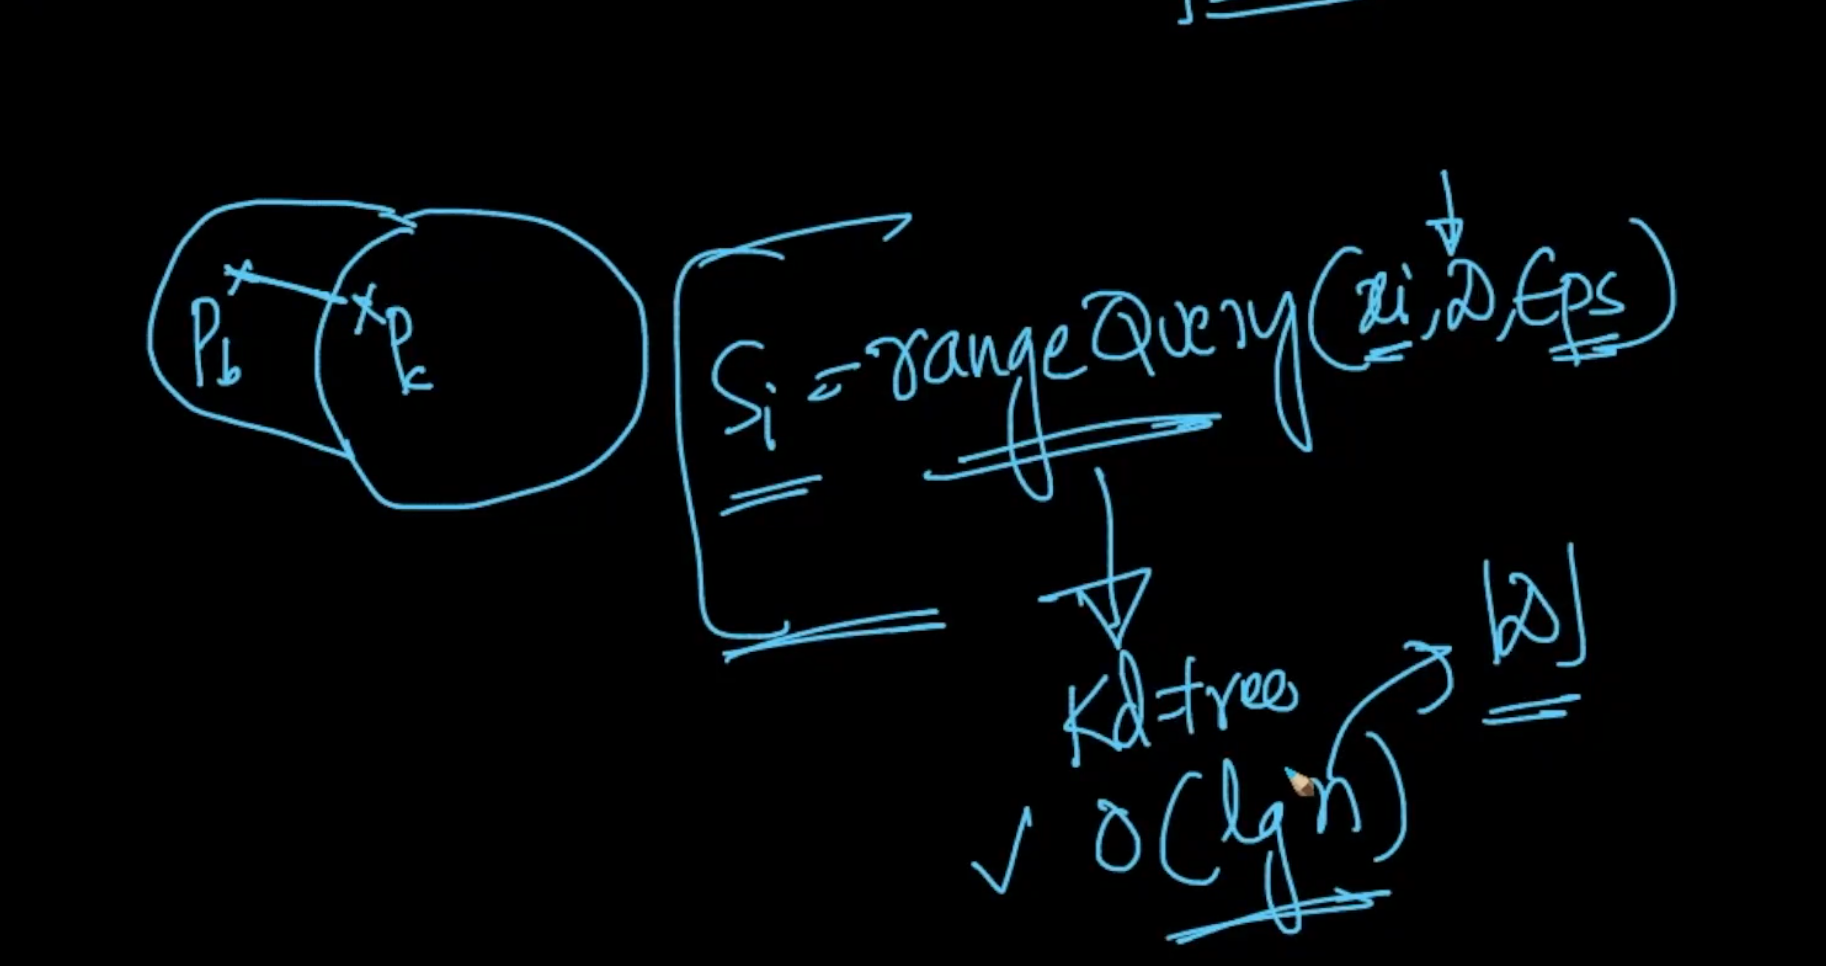 P_b
P_k
S_i = rangeQuery(x_i, D, Eps)
|D|
Kd-tree
✓ O(lg n)